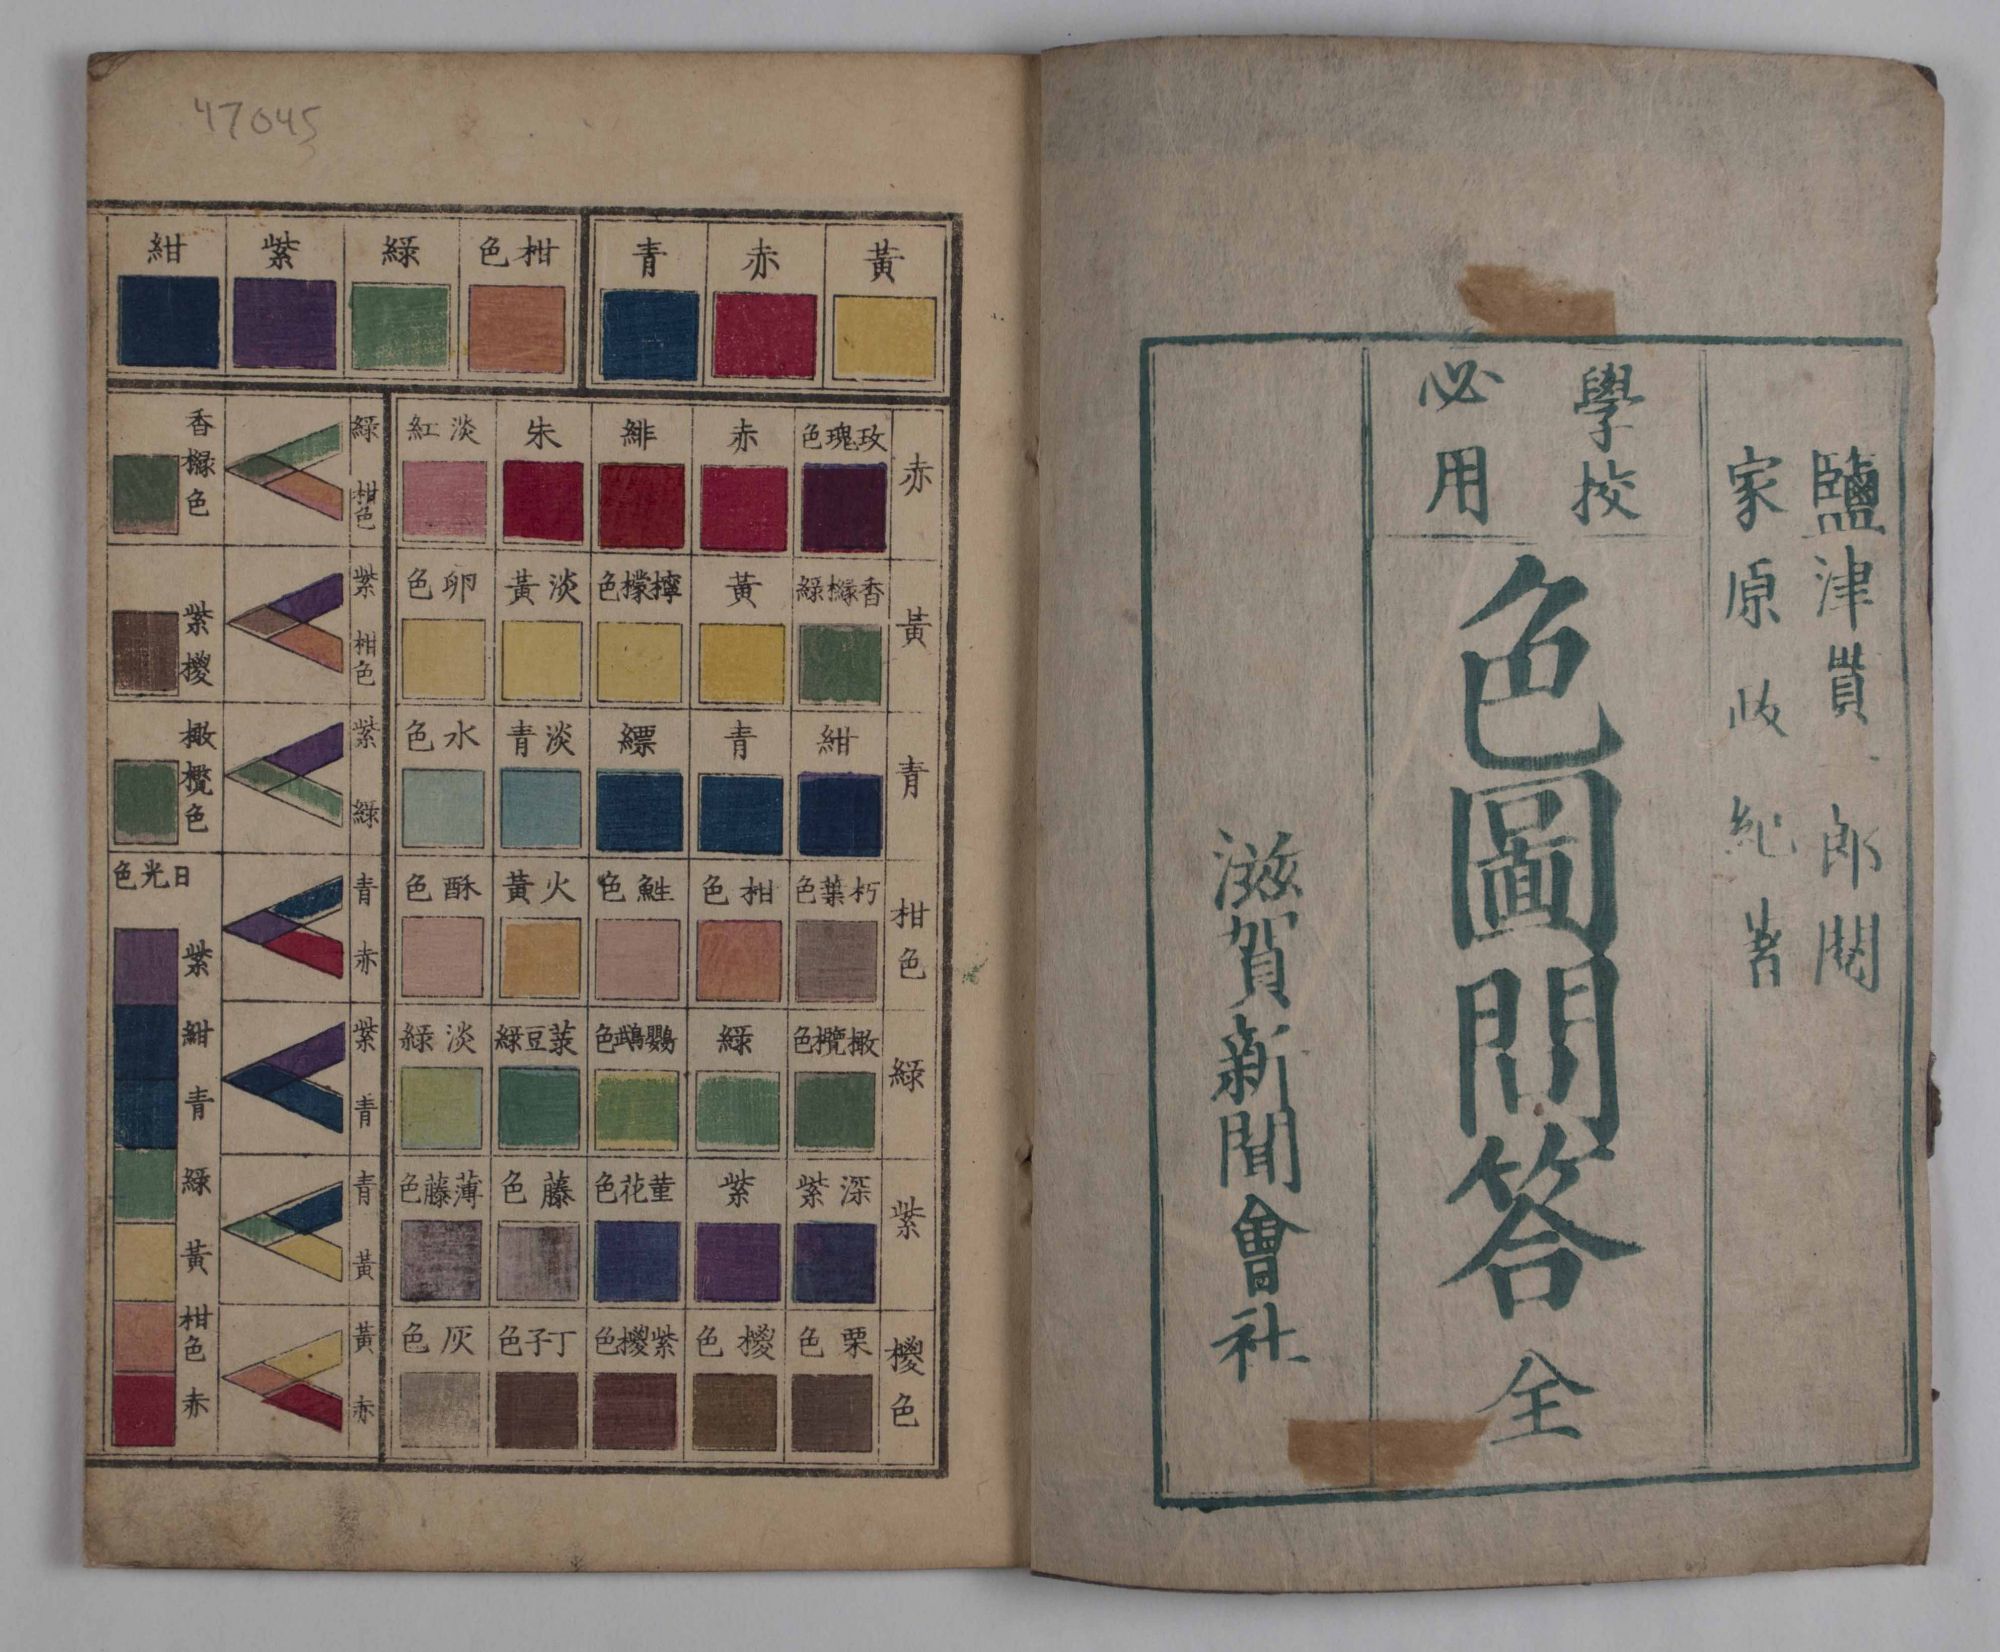 鹽津貫一郎閲
家原政紀著
學校
必用
色圖問答 全
滋賀新聞會社
47045
黃 赤 青
柑色 綠 紫 紺
赤
玫瑰色 赤 緋 朱 淡紅
黃
香櫞綠 黃 檸檬色 淡黃 卵色
青
紺 青 縹 淡青 水色
柑色
朽葉色 柑色 鮏色 火黃 酥色
綠
橄欖色 綠 鸚鵡色 菉豆綠 淡綠
紫
深紫 紫 菫花色 藤色 薄藤色
椶色
栗色 椶色 紫椶色 丁子色 灰色
綠 柑色
香櫞色
紫 柑色
紫椶
紫 綠
橄欖色
青 赤
紫 青
青 黃
黃 赤
日光色
紫
紺
青
綠
黃
柑色
赤